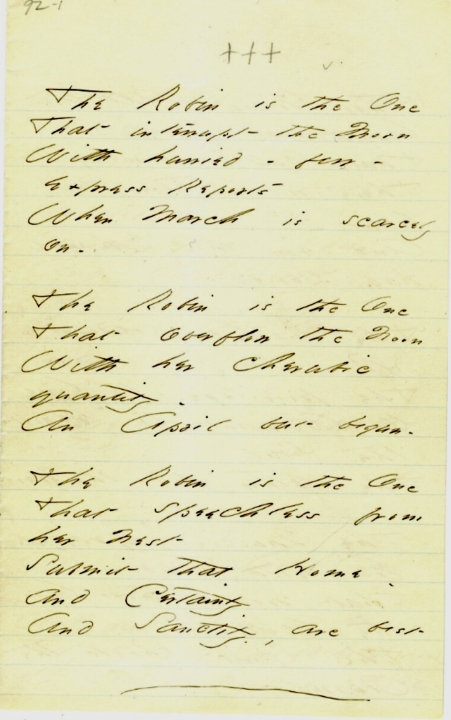 92-1
+++
The Robin is the One
That interrupt the Morn
With hurried - few -
Express Reports
When March is scarcely
on -
The Robin is the One
That overflow the Noon
With her Cherubic
quantity -
An April but begun -
The Robin is the One
That speechless from
her Nest
Submit that Home -
and Certainty
And Sanctity, are best